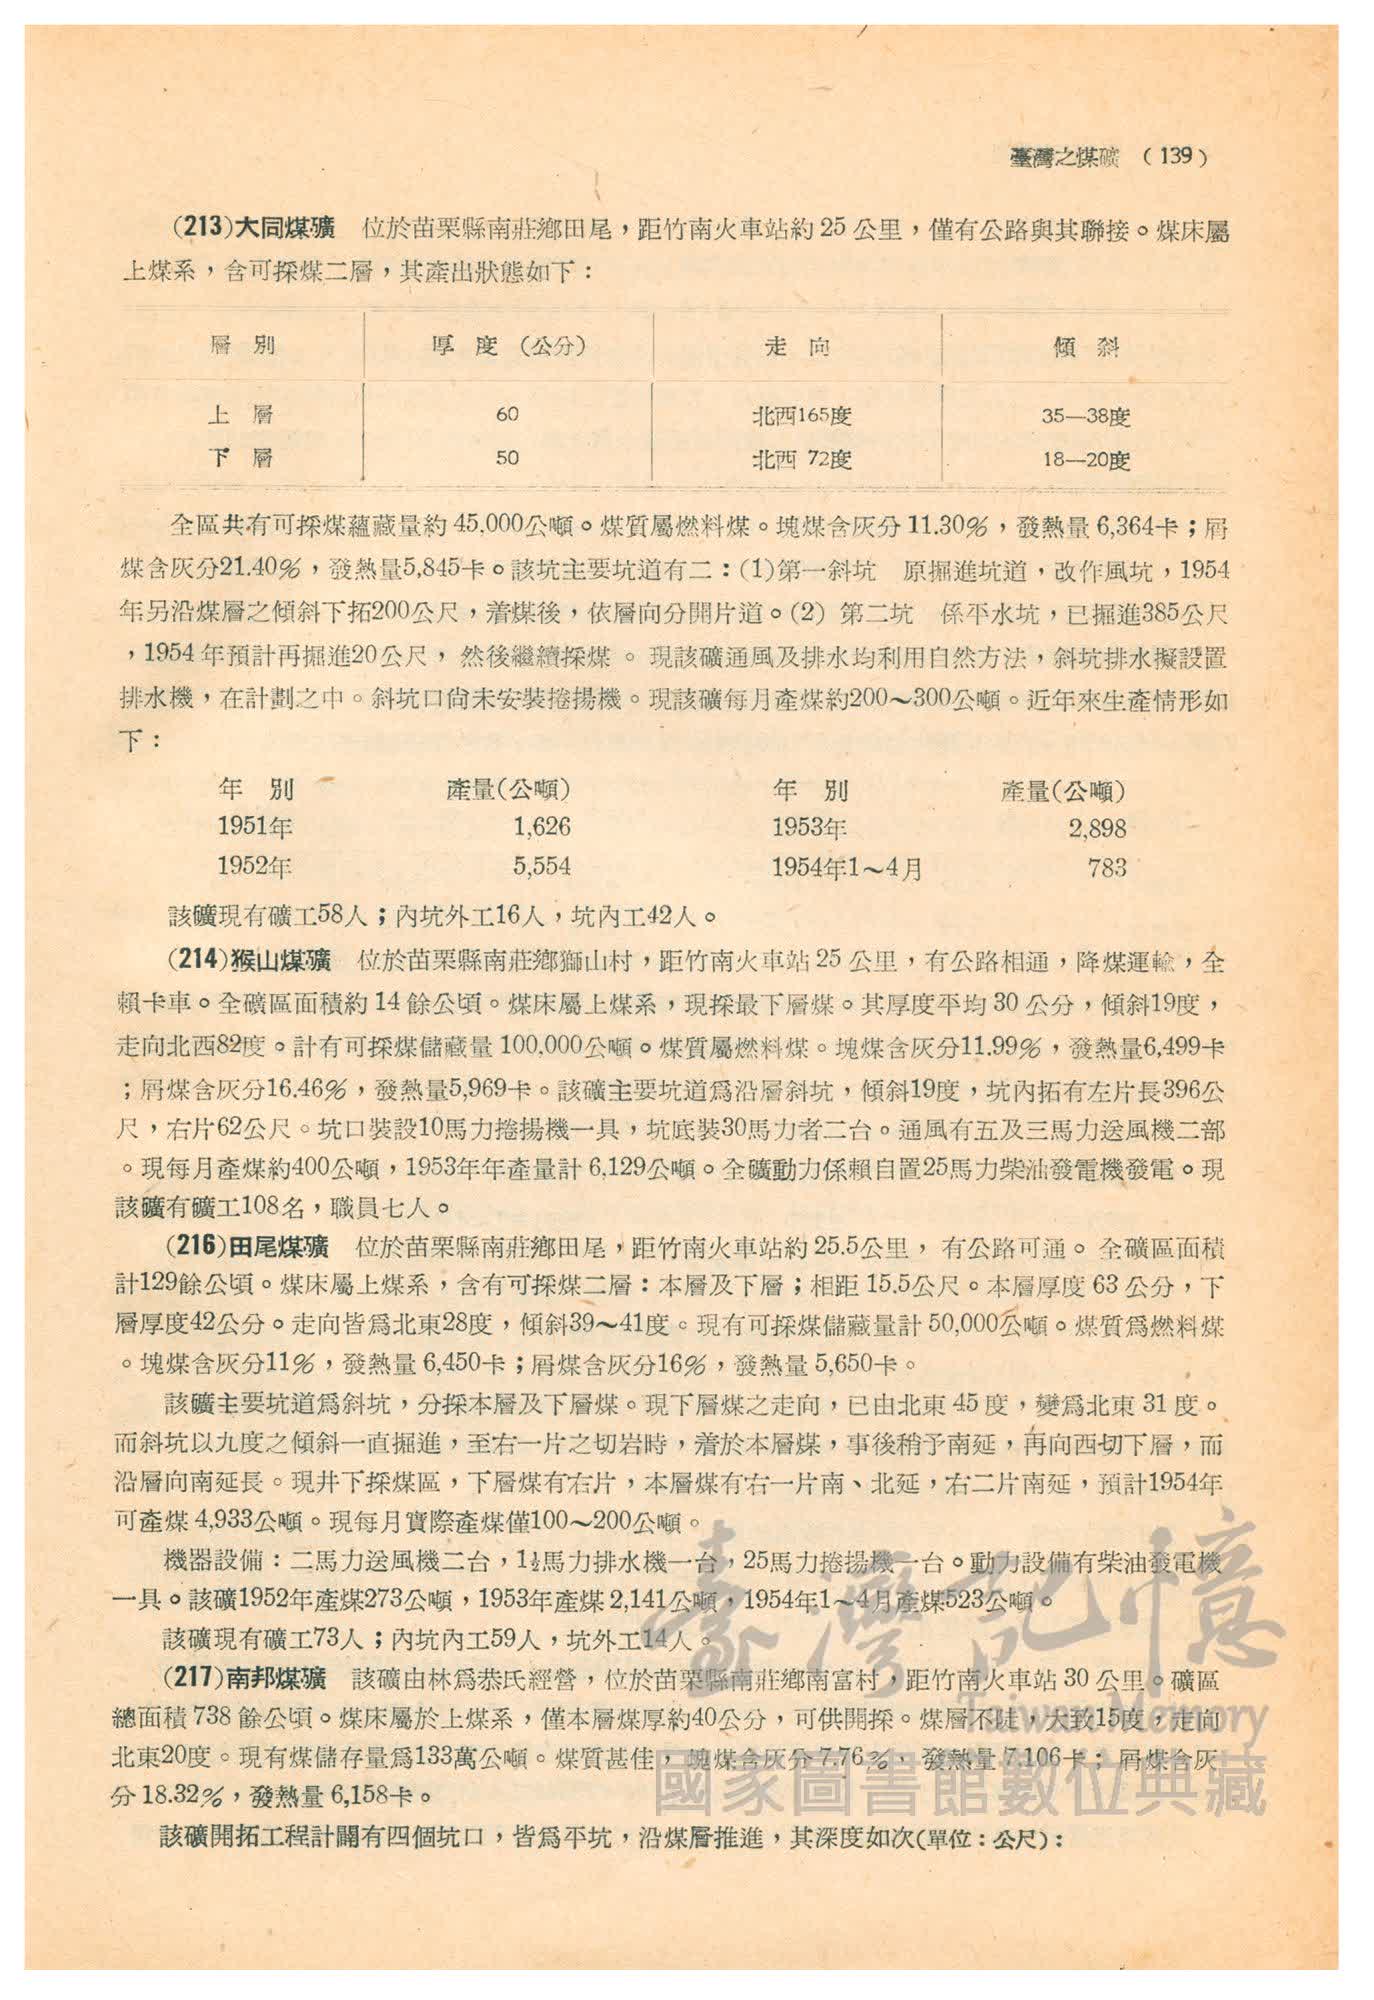 臺灣之煤礦 (139)
(213)大同煤礦 位於苗栗縣南莊鄉田尾，距竹南火車站約 25 公里，僅有公路與其聯接。煤床屬
上煤系，含可採煤二層，其產出狀態如下：
層 別 厚 度 (公分) 走 向 傾 斜
上 層 60 北西165度 35—38度
下 層 50 北西 72度 18—20度
全區共有可採煤蘊藏量約 45,000公噸。煤質屬燃料煤。塊煤含灰分 11.30%，發熱量 6,364卡；屑
煤含灰分21.40%，發熱量5,845卡。該坑主要坑道有二：(1)第一斜坑 原掘進坑道，改作風坑，1954
年另沿煤層之傾斜下拓200公尺，着煤後，依層向分開片道。(2) 第二坑 係平水坑，已掘進385公尺
，1954 年預計再掘進20公尺， 然後繼續採煤 。 現該礦通風及排水均利用自然方法，斜坑排水擬設置
排水機，在計劃之中。斜坑口尙未安裝捲揚機。現該礦每月產煤約200～300公噸。近年來生產情形如
下：
年 別 產量(公噸) 年 別 產量(公噸)
1951年 1,626 1953年 2,898
1952年 5,554 1954年1～4月 783
該礦現有礦工58人；內坑外工16人，坑內工42人。
(214)猴山煤礦 位於苗栗縣南莊鄉獅山村，距竹南火車站 25 公里，有公路相通，降煤運輸，全
賴卡車。全礦區面積約 14 餘公頃。煤床屬上煤系，現採最下層煤。其厚度平均 30 公分，傾斜19度，
走向北西82度。計有可採煤儲藏量 100,000公噸。煤質屬燃料煤。塊煤含灰分11.99%，發熱量6,499卡
；屑煤含灰分16.46%，發熱量5,969卡。該礦主要坑道爲沿層斜坑，傾斜19度，坑內拓有左片長396公
尺，右片62公尺。坑口裝設10馬力捲揚機一具，坑底裝30馬力者二台。通風有五及三馬力送風機二部
。現每月產煤約400公噸，1953年年產量計 6,129公噸。全礦動力係賴自置25馬力柴油發電機發電。現
該礦有礦工108名，職員七人。
(216)田尾煤礦 位於苗栗縣南莊鄉田尾，距竹南火車站約 25.5公里， 有公路可通。 全礦區面積
計129餘公頃。煤床屬上煤系，含有可採煤二層：本層及下層；相距 15.5公尺。本層厚度 63 公分，下
層厚度42公分。走向皆爲北東28度，傾斜39～41度。現有可採煤儲藏量計 50,000公噸。煤質爲燃料煤
。塊煤含灰分11%，發熱量 6,450卡；屑煤含灰分16%，發熱量 5,650卡。
該礦主要坑道爲斜坑，分採本層及下層煤。現下層煤之走向，已由北東 45 度，變爲北東 31 度。
而斜坑以九度之傾斜一直掘進，至右一片之切岩時，着於本層煤，事後稍予南延，再向西切下層，而
沿層向南延長。現井下採煤區，下層煤有右片，本層煤有右一片南、北延，右二片南延，預計1954年
可產煤 4,933公噸。現每月實際產煤僅100～200公噸。
機器設備：二馬力送風機二台，1½馬力排水機一台，25馬力捲揚機一台。動力設備有柴油發電機
一具。該礦1952年產煤273公噸，1953年產煤 2,141公噸，1954年1～4月產煤523公噸。
該礦現有礦工73人；內坑內工59人，坑外工14人。
(217)南邦煤礦 該礦由林爲恭氏經營，位於苗栗縣南莊鄉南富村，距竹南火車站 30 公里。礦區
總面積 738 餘公頃。煤床屬於上煤系，僅本層煤厚約40公分，可供開採。煤層不陡，大致15度，走向
北東20度。現有煤儲存量爲133萬公噸。煤質甚佳， 塊煤含灰分 7.76 %， 發熱量 7,106卡； 屑煤含灰
分 18.32%，發熱量 6,158卡。
該礦開拓工程計闢有四個坑口，皆爲平坑，沿煤層推進，其深度如次(單位：公尺)：
臺灣記憶
Taiwan Memory
國家圖書館數位典藏